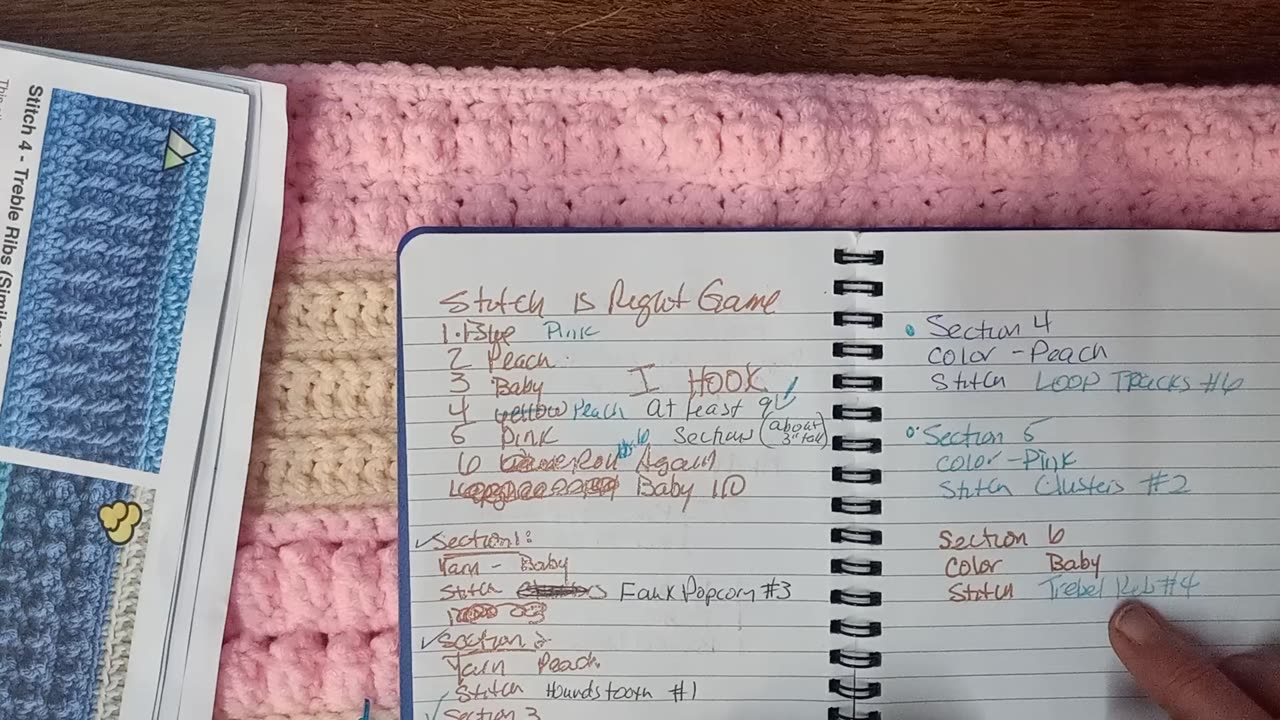 This
Stitch 4 - Treble Ribs (Similar
Stitch is Right Game
1. Pink
2 Peach
3 Baby I HOOK
4 Peach at least 9
5 Pink 6 Section (about 3" tall)
6 Roll Again
Baby 10
Section 1:
Yarn - Baby
Stitch Faux Popcorn #3
Section 2
Yarn Peach
Stitch Houndstooth #1
Section 3
Section 4
Color - Peach
Stitch LOOP TRACKS #6
Section 5
Color - Pink
Stitch Clusters #2
Section 6
Color Baby
Stitch Trebel Rib #4